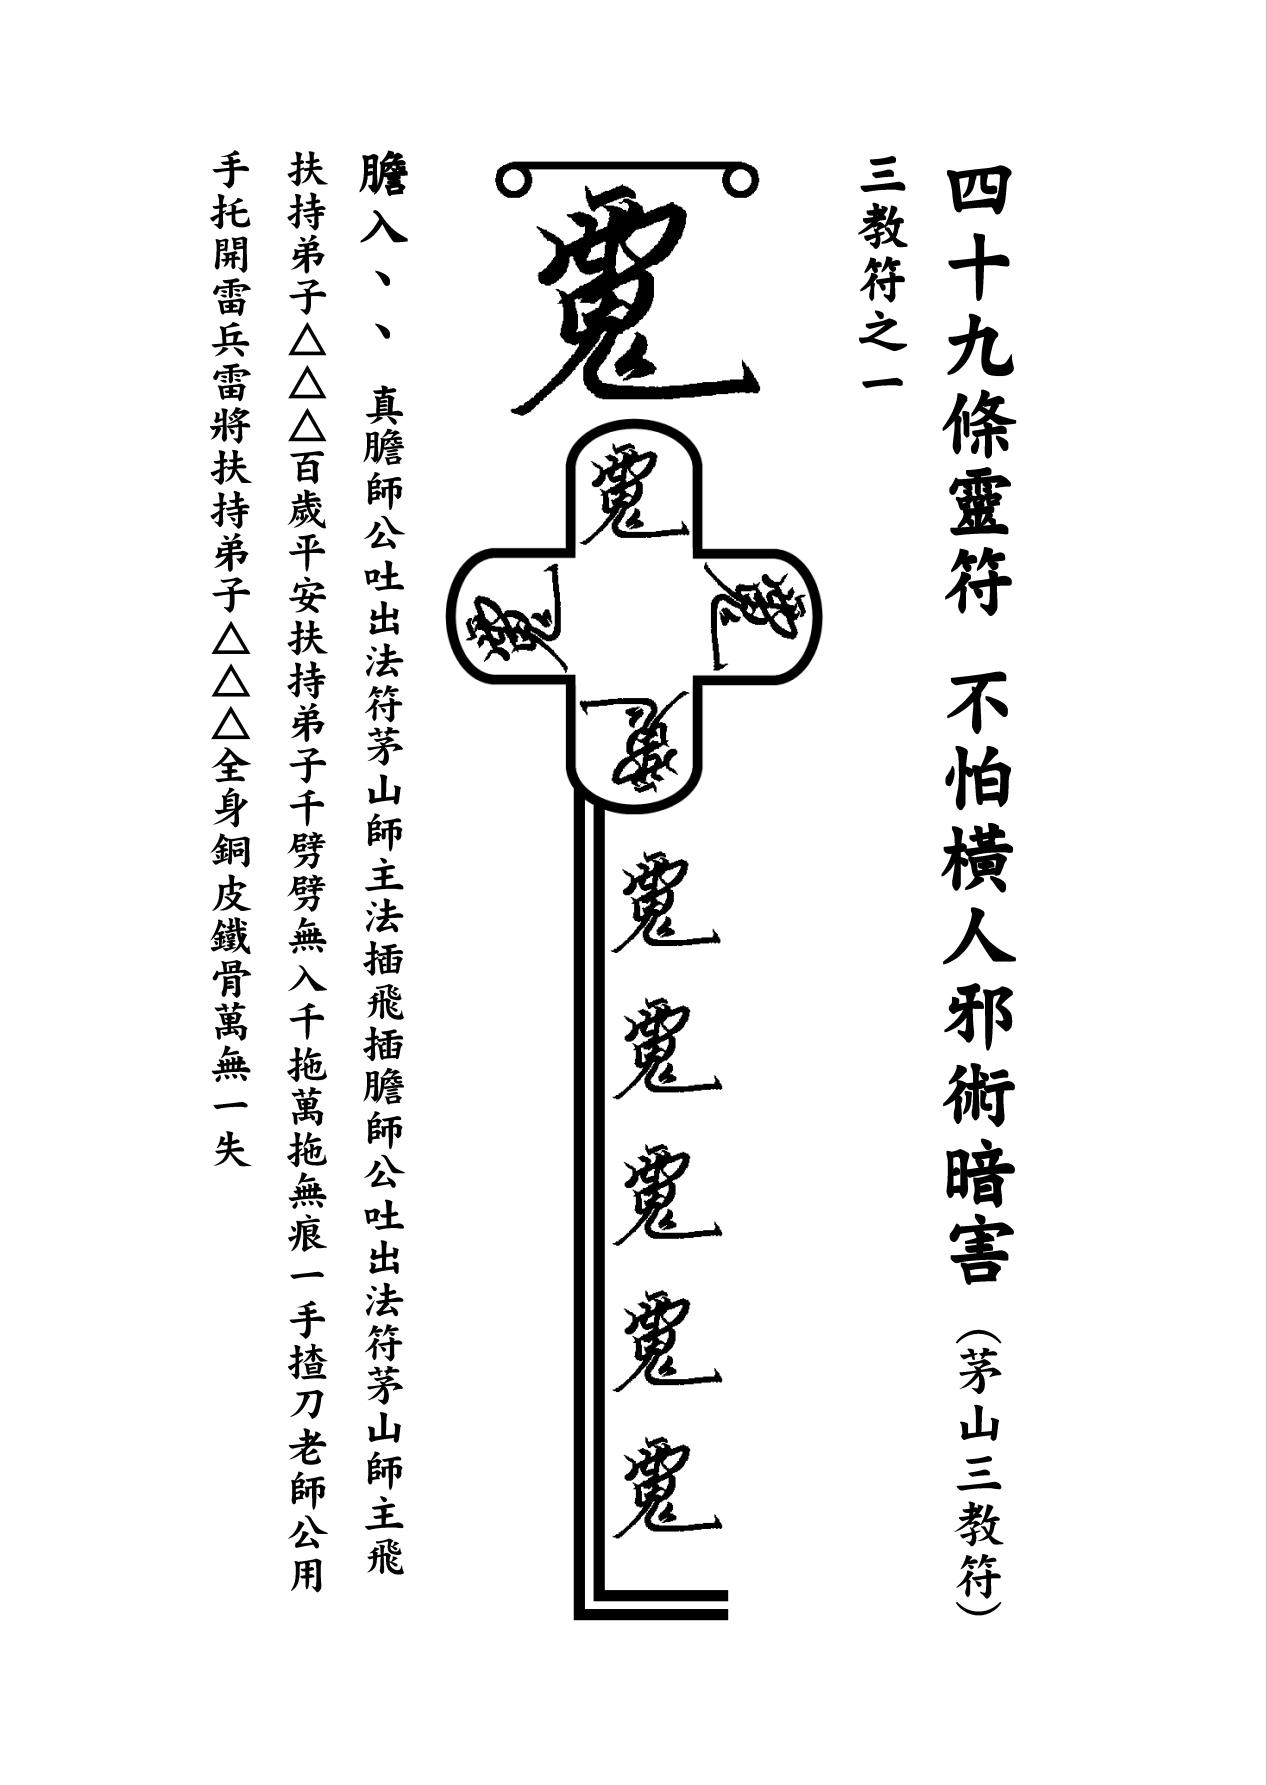 四十九條靈符 不怕橫人邪術暗害（茅山三教符）
三教符之一
膽入、、 真膽師公吐出法符茅山師主法插飛插膽師公吐出法符茅山師主飛
扶持弟子△△△百歲平安扶持弟子千劈劈無入千拖萬拖無痕一手揸刀老師公用
手托開雷兵雷將扶持弟子△△△全身銅皮鐵骨萬無一失